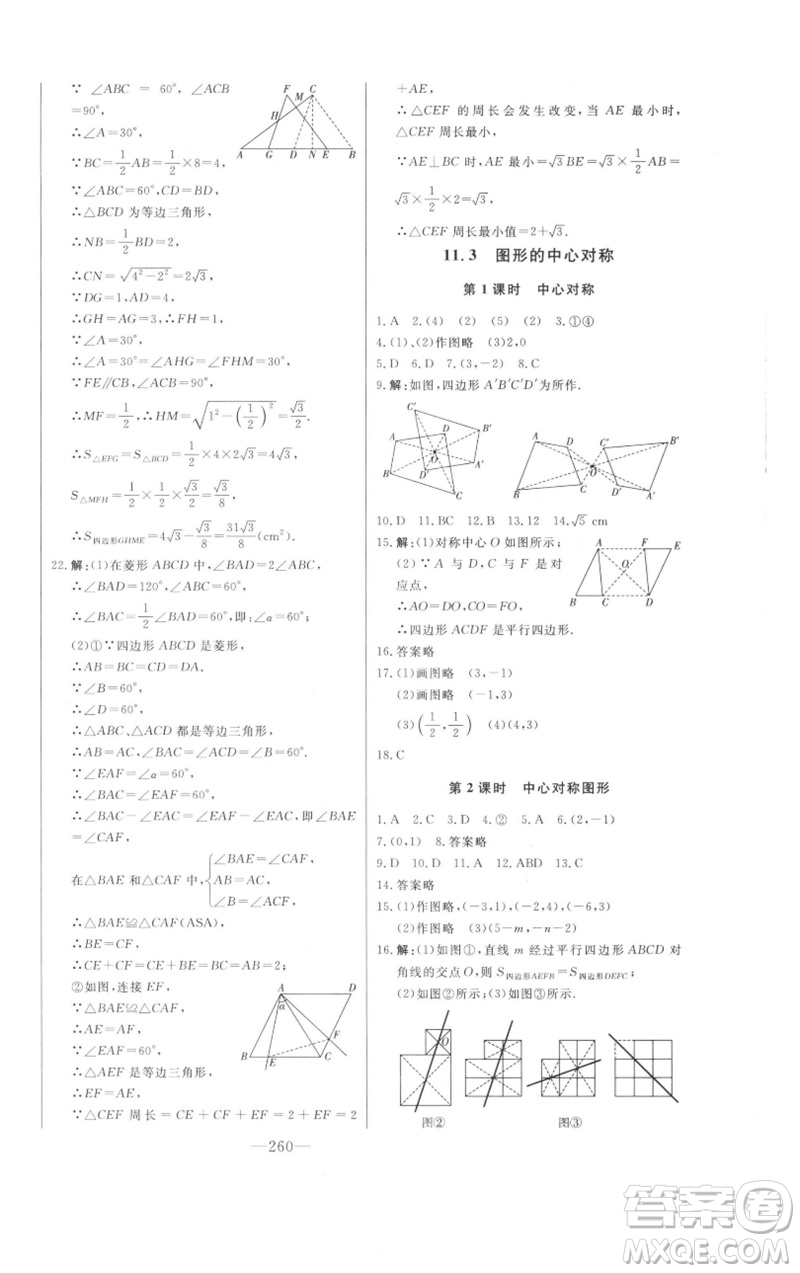 ∵ ∠ABC = 60°, ∠ACB
=90°,
∴∠A=30°,
∵BC=1/2AB=1/2×8=4,
∵∠A=60°,CD=BD,
∴△BCD 为等边三角形,
∴NB=1/2BD=2,
∴CN=√(4²−2²)=2√3.
∵DG=1,∴AG=3,
∴GH=AG=3,∴FH=1,
∵∠A=30°,
∴∠A=30°=∠AHG=∠FHM=30°.
∵FE∥CB,∴∠FMH=∠ACB=90°.
∴MF=1/2,∴HM=√(1²−(1/2)²)=√3/2.
∴S△EFG=S△BCD=1/2×4×2√3=4√3,
S△MFH=1/2×1/2×√3/2=√3/8,
∴S四边形GHME=4√3−√3/8=31√3/8(cm²).
22.解:(1)在菱形 ABCD 中,∠BAD=2∠BAC,
∴∠BAD=120°,∠BAC=60°,
∴∠BAC=1/2∠BAD=60°,即:∠α=60°;
(2)①∵四边形 ABCD 是菱形,
∴AB=BC=CD=DA.
∵∠B=60°,
∴∠D=60°,
∴△ABC、△ACD 都是等边三角形,
∴AB=AC,∠BAC=∠ACD=∠B=60°.
∵∠EAF=∠α=60°,
∴∠BAC=∠EAF=60°,
∴∠BAC−∠EAC=∠EAF−∠EAC,即∠BAE
=∠CAF,
在△BAE 和△CAF 中,{∠BAE=∠CAF,
AB=AC,
∠B=∠ACF,
∴△BAE≌△CAF(ASA),
∴BE=CF,
∴CE+CF=CE+BE=BC=2;
②如图,连接 EF,
∵△BAE≌△CAF,
∴AE=AF,
∵∠EAF=60°,
∴△AEF 是等边三角形,
∴EF=AE,
∵△CEF 周长=CE+CF+EF=2+EF=2
F C
M
H
A G D N E B
A D
α
F
B E C
+AE,
∴△CEF 的周长会发生改变,当 AE 最小时,
△CEF 周长最小,
∵AE⊥BC 时,AE 最小=√3BE=√3×1/2AB=
√3×1/2×2=√3.
∴△CEF 周长最小值=2+√3.
11.3 图形的中心对称
第 1 课时 中心对称
1.A 2.(4) (2) (5) (2) 3.①④
4.(1)、(2)作图略 (3)2,0
5.D 6.D 7.(3,−2) 8.C
9.解:如图,四边形 A′B′C′D′为所作.
C′
A D B′
O
B D′ A′
C
A D C′ B′
O
B C D′ A′
10.D 11.C 12.B 13.12 14.√5 cm
15.解:(1)对称中心 O 如图所示;
(2)∵A 与 D,C 与 F 是对
应点,
∴AO=DO,CO=FO,
∴四边形 ACDF 是平行四边形.
A F E
O
B C D
16.答案略
17.(1)画图略 (3,−1)
(2)画图略 (−1,3)
(3)(1/2,1/2) (4)(4,3)
18.C
第 2 课时 中心对称图形
1.A 2.C 3.D 4.② 5.A 6.(2,−1)
7.(0,1) 8.答案略
9.D 10.D 11.A 12.ABD 13.C
14.答案略
15.(1)作图略,(−3,1),(−2,4),(−6,3)
(2)作图略 (3)(5−m,−n−2)
16.解:(1)如图①,直线 m 经过平行四边形 ABCD 对
角线的交点 O,则 S四边形AEFB=S四边形DEFC;
(2)如图②所示;(3)如图③所示.
O
图② 图③
—260—
答案卷
MXQE.COM